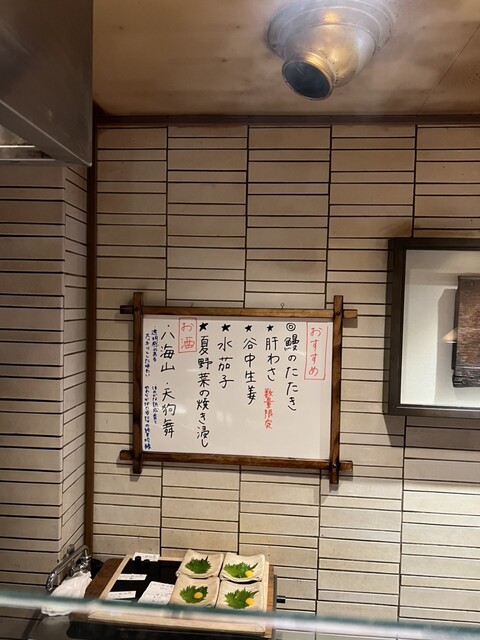 おすすめ
◎鰻のたたき
★肝わさ 数量限定
★谷中生姜
★水茄子
★夏野菜の焼き浸し
お酒
・八海山・天狗舞